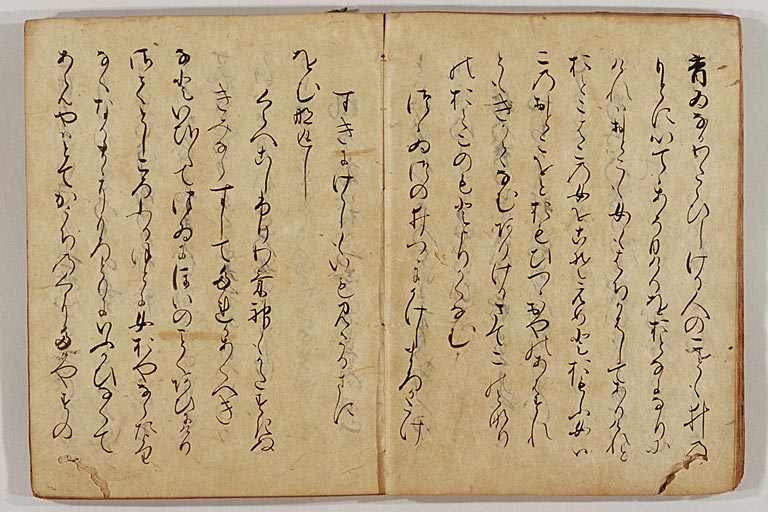 昔ゐなかわたらひしける人のこども井の
もとにいてゝあそひけるをおとなになりに
けれはおとこも女もはちかはしてありけれと
おとこはこの女をこそえめとおもふ女は
このおとこをとおもひつゝおやのあはすれ
ともきかてなむありけるさてこのとなり
のおとこのもとよりかくなむ
つゝゐつの井つゝにかけしまろかたけ
すきにけらしないも見さるまに
をむな返し
くらへこしふりわけ髪もかたすきぬ
きみならすしてたれかあくへき
なといひ〳〵てつゐにほいのことくあひにけり
さてとしころふるほとに女おやなくたより
なくなるまゝにもろともにいふかひなくて
あらんやはとてかうちのくにたかやすの